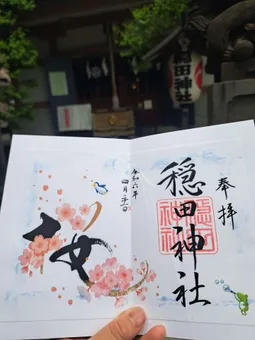 奉拝
穏田神社
穏田
神社
令和六年
四月
穏田神社